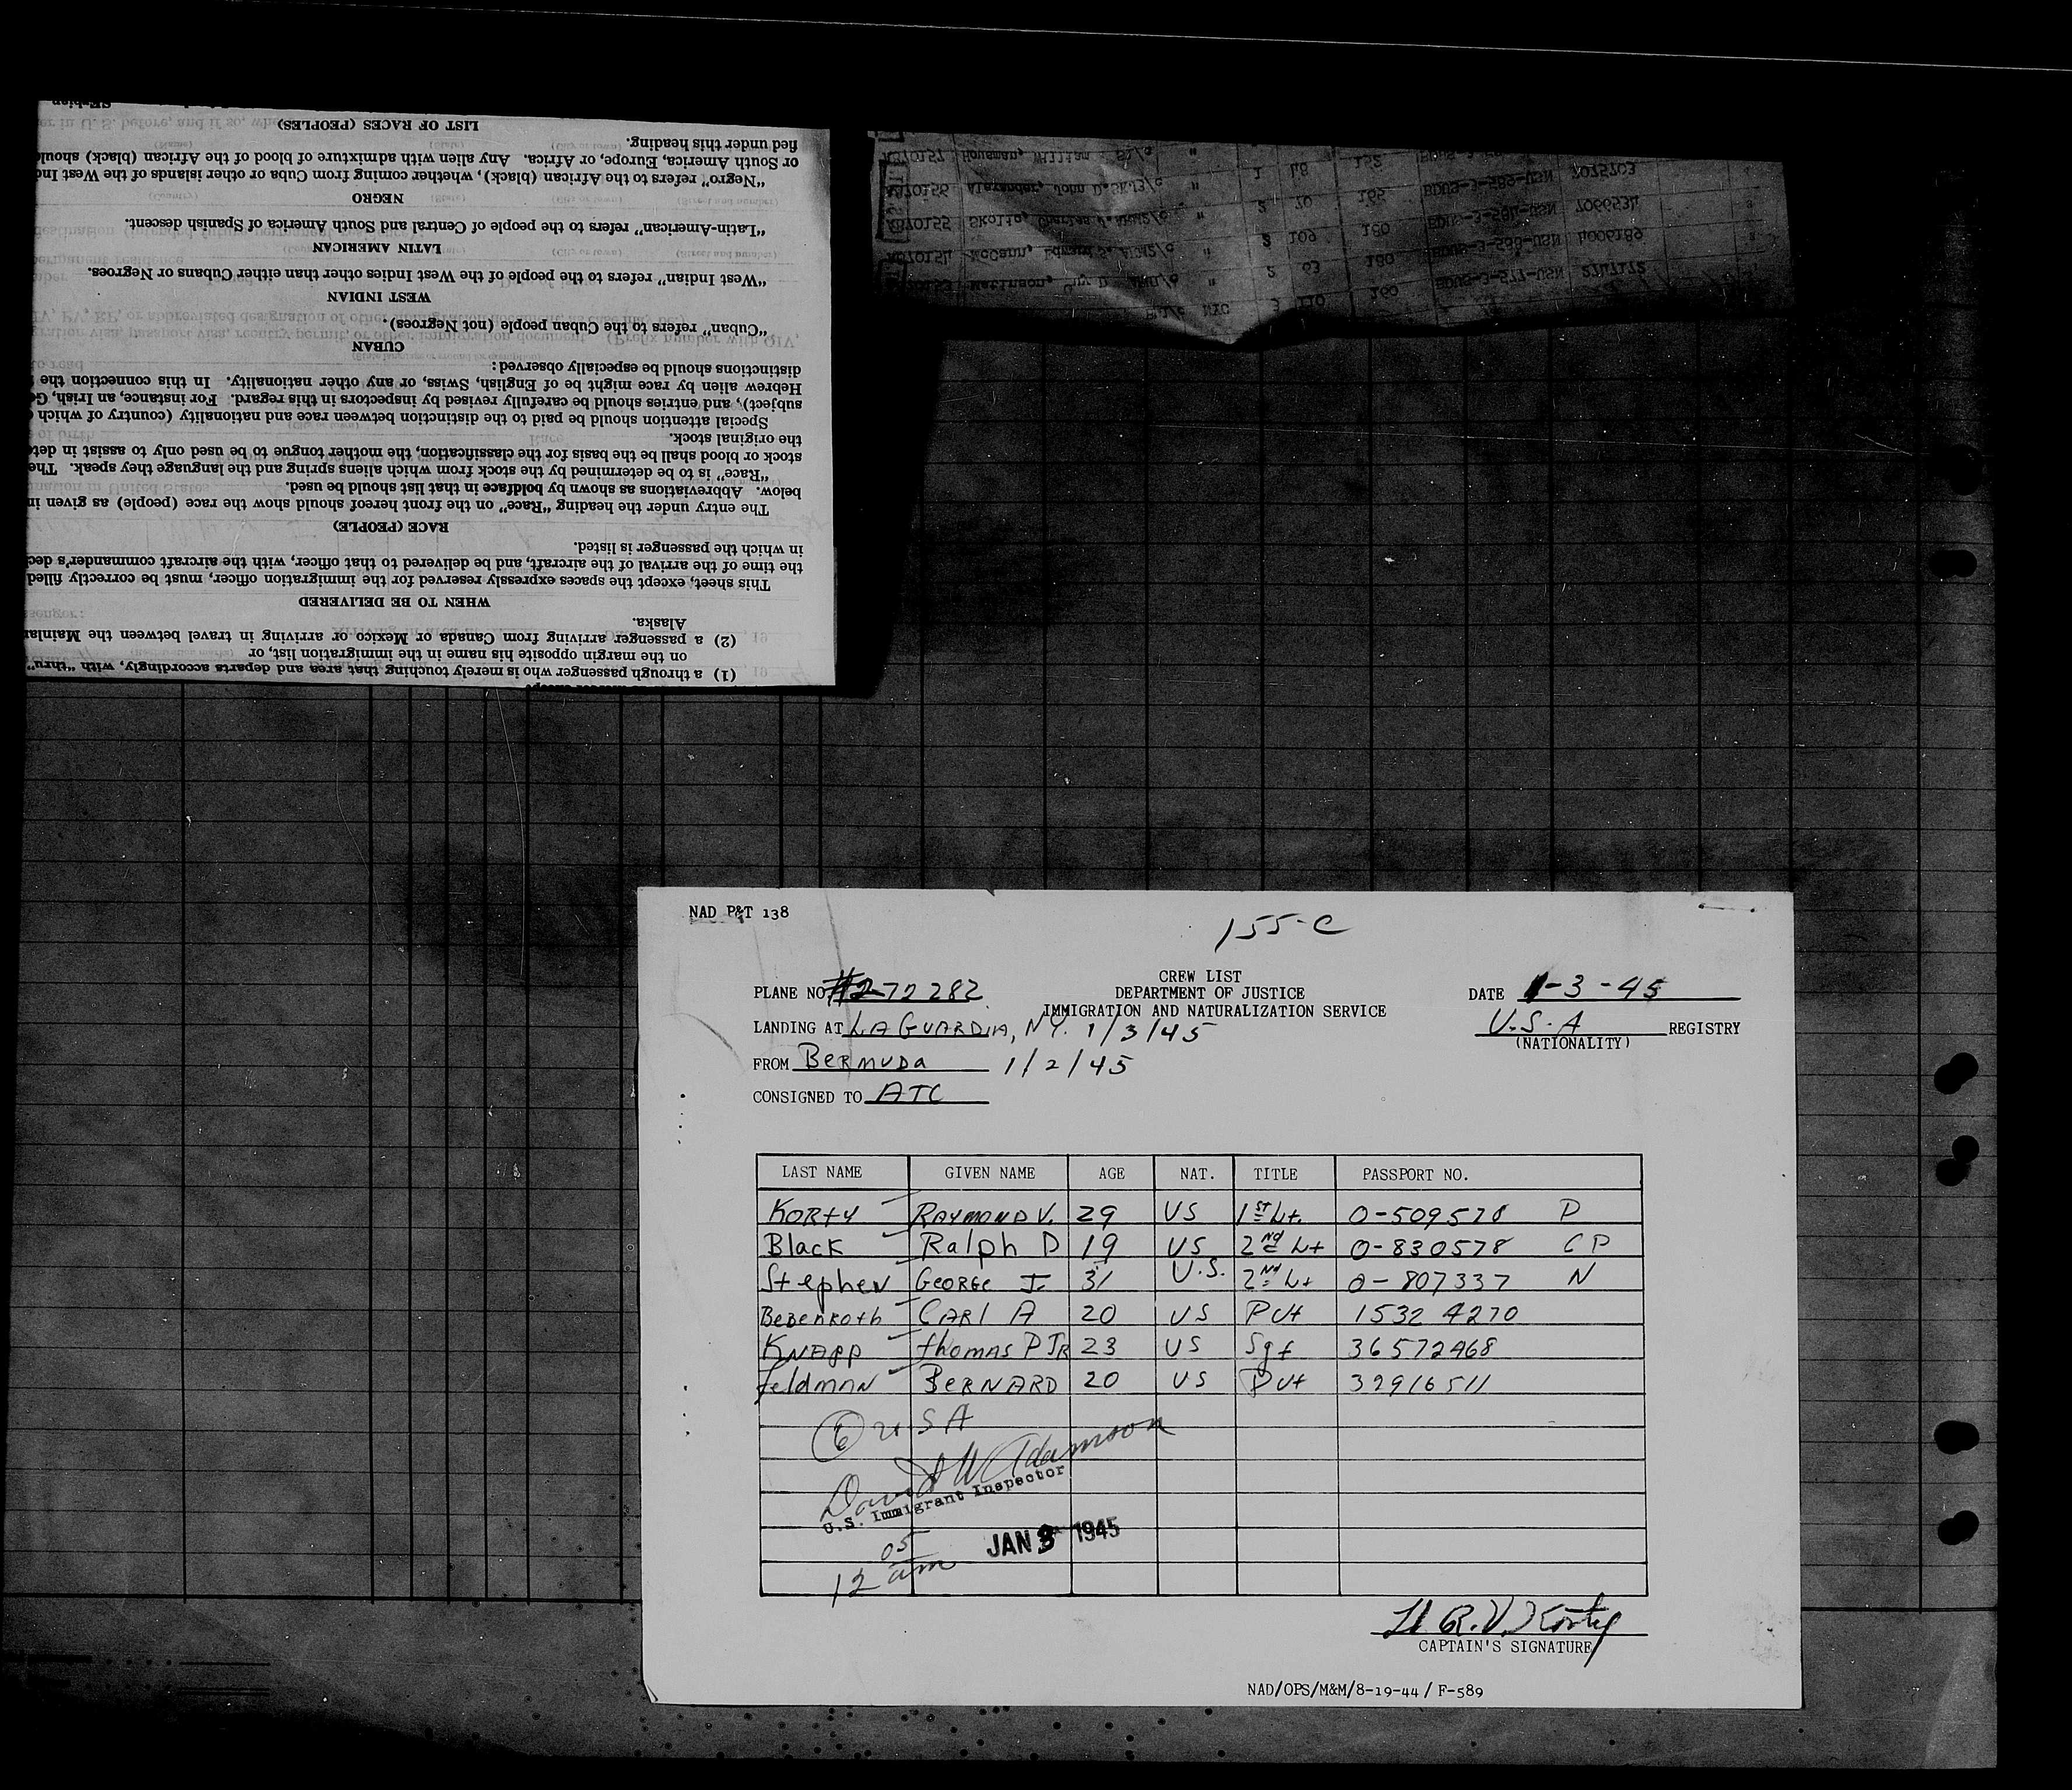 SErbian
LIST OF RACES (PEOPLES)
fied under this heading.
or South America, Europe, or Africa. Any alien with admixture of blood of the African (black) shoul
"Negro" refers to the African (black), whether coming from Cuba or other islands of the West Ind
NEGRO
"Latin-American" refers to the people of Central and South America of Spanish descent.
LATIN AMERICAN
"West Indian" refers to the people of the West Indies other than either Cubans or Negroes.
WEST INDIAN
"Cuban" refers to the Cuban people (not Negroes).
CUBAN
distinctions should be especially observed:
Hebrew alien by race might be of English, Swiss, or any other nationality. In this connection the
subject), and entries should be carefully revised by inspectors in this regard. For instance, an Irish, Ge
Special attention should be paid to the distinction between race and nationality (country of which
the original stock.
stock or blood shall be the basis for the classification, the mother tongue to be used only to assist in dete
"Race" is to be determined by the stock from which aliens spring and the language they speak. The
below. Abbreviations as shown by boldface in that list should be used.
The entry under the heading "Race" on the front hereof should show the race (people) as given in
RACE (PEOPLE)
in which the passenger is listed.
the time of the arrival of the aircraft, and be delivered to that officer, with the aircraft commander's dec
This sheet, except the spaces expressly reserved for the immigration officer, must be correctly filled
WHEN TO BE DELIVERED
Alaska.
(2) a passenger arriving from Canada or Mexico or arriving in travel between the Mainlan
on the margin opposite his name in the immigration list, or
(1) a through passenger who is merely touching that area and departs accordingly, with "thru"
A670157 Housman, William S2/c " 1 48 152
A670156 Alexander, John D. SK.3/c " 2 70 165 BDUS-3-589-USN 7075703
A670155 Skolto, Charles J. ARM2/c " 2 109 160 BDUS-3-584-USN 7066534
A670154 McCann, Edward S. ATM2/c " 2 63 180 BDUS-3-588-USN 4006189
Matinson, Guy D. AMM1/c " 3 110 160 BDUS-3-577-USN 2747172
NYC
NAD P&T 138
155-C
CREW LIST
DEPARTMENT OF JUSTICE
IMMIGRATION AND NATURALIZATION SERVICE
PLANE NO #2-72282
DATE 1-3-45
LANDING AT LA GUARDIA, N.Y. 1/3/45
U.S.A REGISTRY
(NATIONALITY)
FROM BERMUDA 1/2/45
CONSIGNED TO ATC
LAST NAME GIVEN NAME AGE NAT. TITLE PASSPORT NO.
KORTY RAYMOND V. 29 US 1ST Lt. O-509578 P
Black Ralph D 19 US 2ND Lt O-830578 CP
Stephen GEORGE J. 31 U.S. 2ND Lt O-807337 N
Bebenroth CARl A 20 US Pvt 1532 4270
KNAPP thomas P JR 23 US Sgt 36572468
feldmaN BERNARD 20 US Pvt 32916511
6 USA
David W Adamson
U.S. Immigrant Inspector
JAN 3 1945
12 05 am
Lt R.V. Korty
CAPTAIN'S SIGNATURE
NAD/OPS/M&M/8-19-44/ F-589